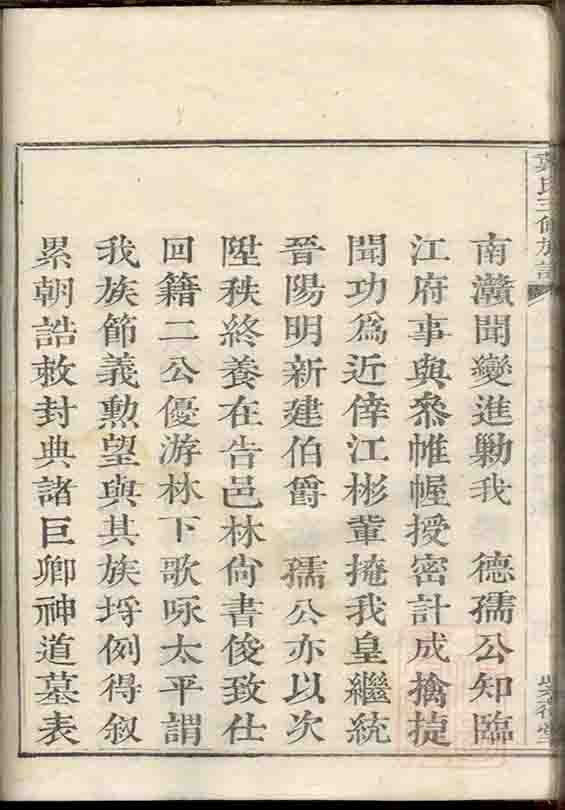 氏三修族譜
南贛聞變進勦我　德孺公知臨
江府事與叅帷幄授密計成擒捷
聞功爲近倖江彬輩掩我皇繼統
晉陽明新建伯爵　孺公亦以次
陞秩終養在告邑林尙書俊致仕
回籍二公優游林下歌咏太平謂
我族節義勲望與其族埒例得叙
累朝誥敕封典諸巨卿神道墓表